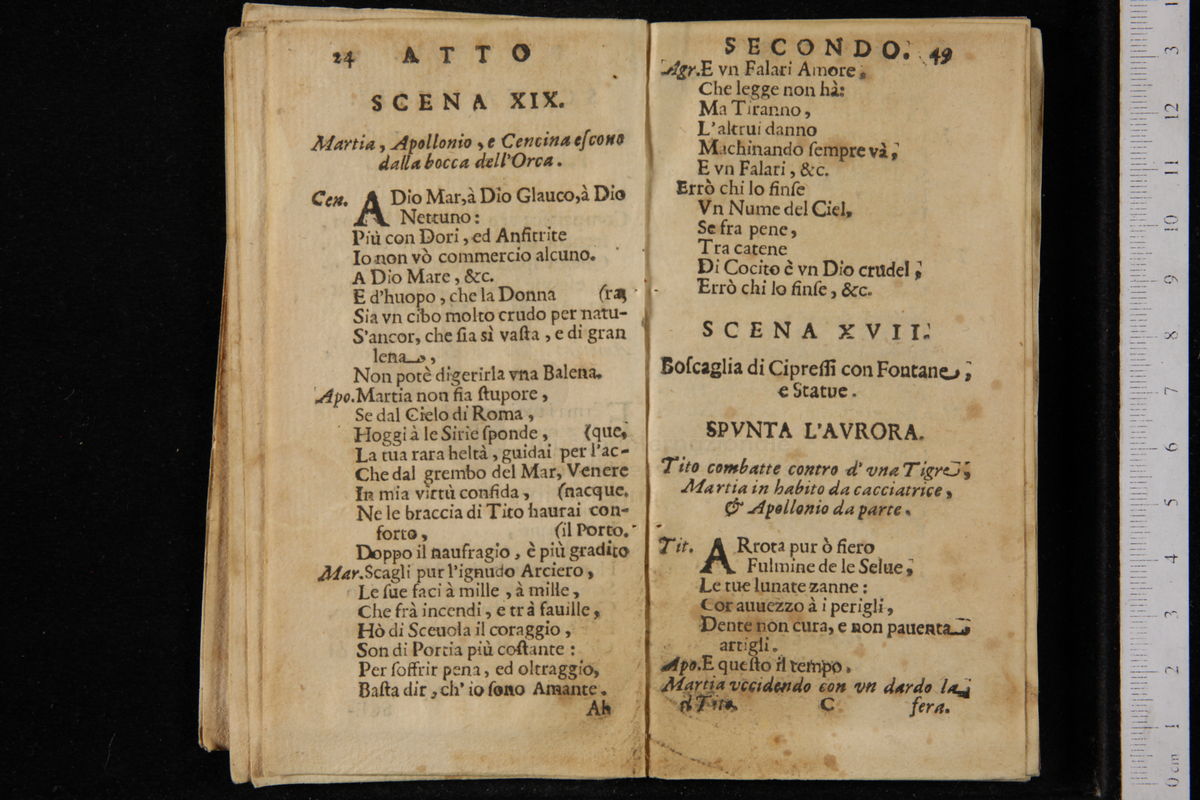 24 ATTO
SCENA XIX.
Martia, Apollonio, e Cencina eſcono
dalla bocca dell'Orca.
Cen. A Dio Mar,à Dio Glauco,à Dio
Nettuno:
Più con Dori, ed Anfitrite
Io non vò commercio alcuno.
A Dio Mare, &c.
E d'huopo, che la Donna (ra,
Sia vn cibo molto crudo per natu-
S'ancor, che ſia sì vaſta, e di gran
lena,
Non potè digerirla vna Balena.
Apo. Martia non ſia ſtupore,
Se dal Cielo di Roma,
Hoggi à le Sirie ſponde, (que,
La tua rara beltà, guidai per l'ac-
Che dal grembo del Mar, Venere
In mia virtù confida, (nacque.
Ne le braccia di Tito haurai con-
forto, (il Porto.
Doppo il naufragio, è più gradito
Mar. Scagli pur l'ignudo Arciero,
Le ſue faci à mille, à mille,
Che frà incendi, e trà fauille,
Hò di Sceuola il coraggio,
Son di Portia più coſtante:
Per ſoffrir pena, ed oltraggio,
Baſta dir, ch' io ſono Amante.
Ah
SECONDO. 49
Agr. E vn Falari Amore,
Che legge non hà:
Ma Tiranno,
L'altrui danno
Machinando ſempre và;
E vn Falari, &c.
Errò chi lo finſe
Vn Nume del Ciel,
Se fra pene,
Tra catene
Di Cocito è vn Dio crudel;
Errò chi lo finſe, &c.
SCENA XVII.
Boſcaglia di Cipreſſi con Fontane,
e Statue.
SPVNTA L'AVRORA.
Tito combatte contro d' vna Tigre,
Martia in habito da cacciatrice,
& Apollonio da parte.
Tit. ARrota pur ò fiero
Fulmine de le Selue,
Le tue lunate zanne:
Cor auuezzo à i perigli,
Dente non cura, e non pauenta
artigli.
Apo. E queſto il tempo.
Martia vccidendo con vn dardo la
C fera.